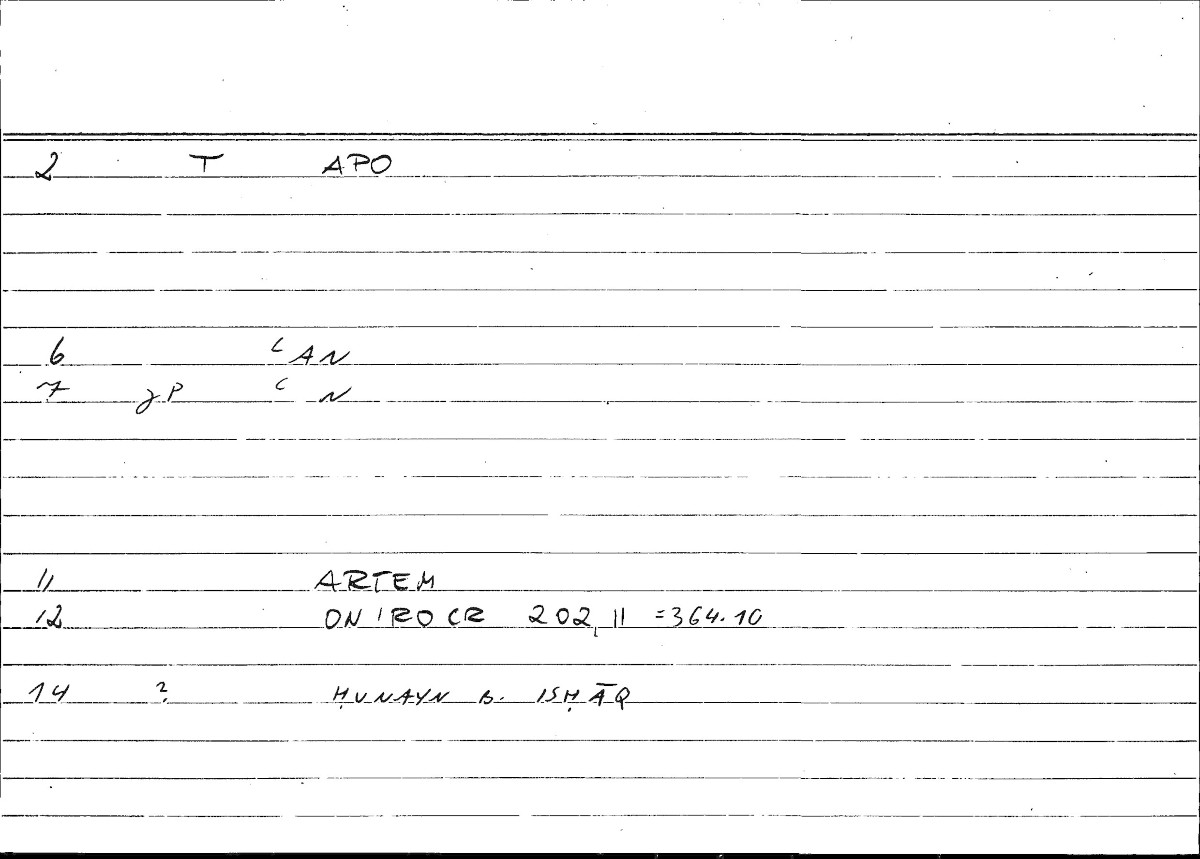 2 T APO
6 ʿAN
7 gP ʿ N
11 ARTEM
12 ONIROCR 202,11 =364.10
14 ? ḤUNAYN B. ISḤĀQ